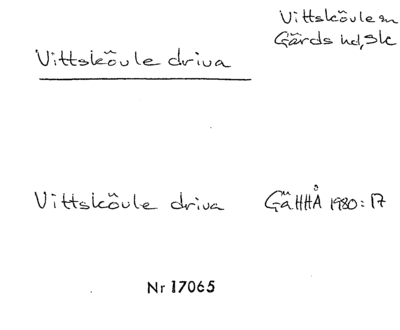 Vittskövle sn
Gärds hd, Sk
Vittskövle driva
Vittskövle driva GäHHÅ 1980:17
Nr 17065